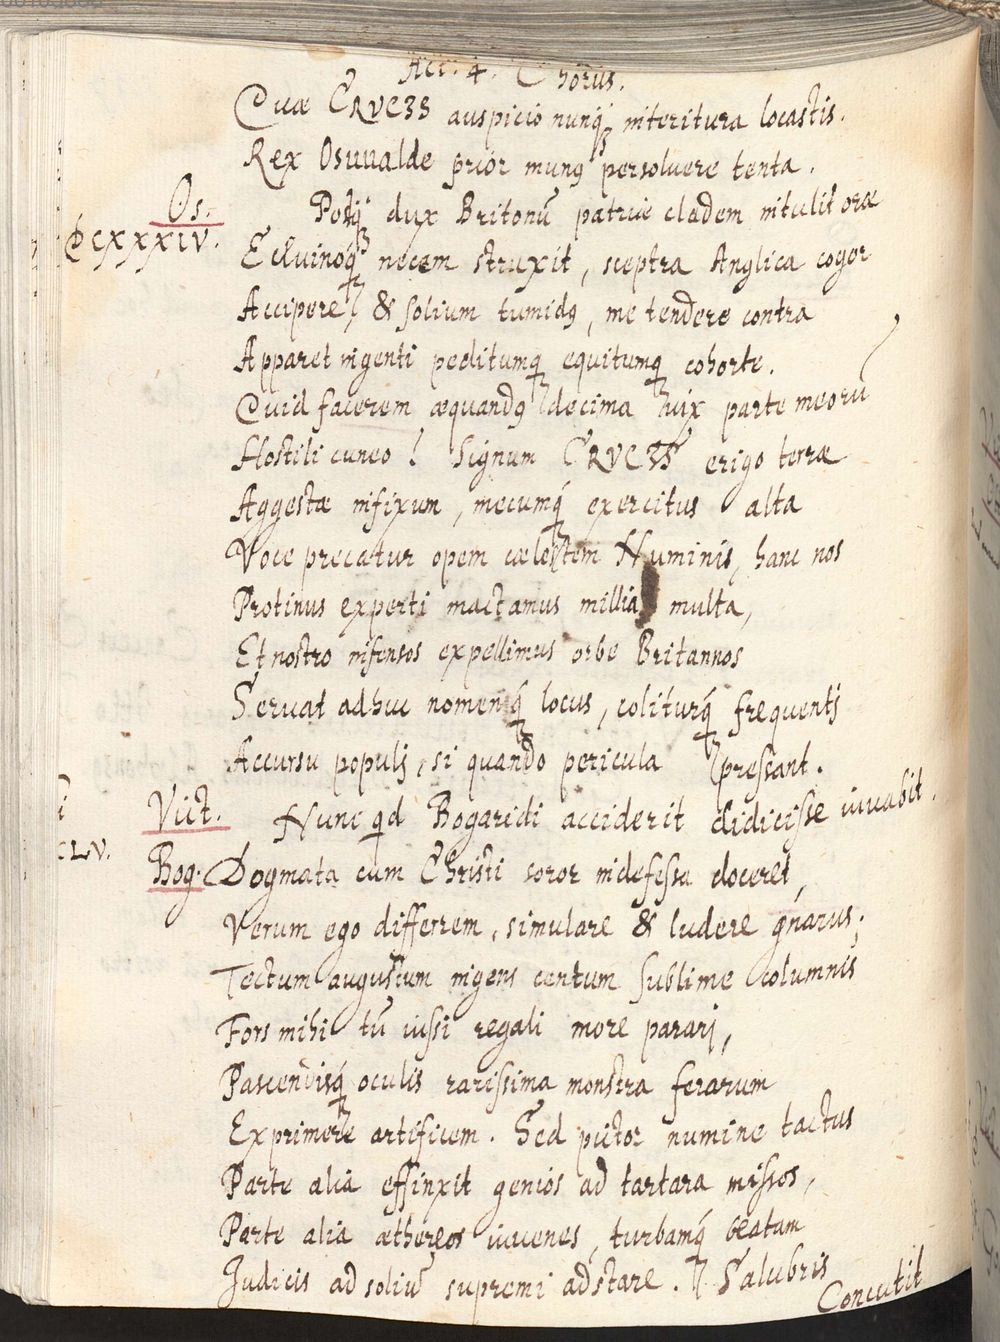 Act. 4. Chorus.
Quæ CRVCIS auspicio nunq́ȝ interitura locastis.
Rex Osuualde prior munꝰ persoluere tenta.
Os. Postq̃ȝ dux Britonũ patriæ cladem intulit oræ
DCXXXIV. Eduinoq́ȝ necem struxit, sceptra Anglica cogor
Accipere, & solium tumidꝰ, me tendere contra
Apparet ingenti peditumqȝ equitumqȝ cohorte.
Quid facerem æquandꝰ decima uix parte meorũ
Hostili cuneo? Signum CRVCIS erigo terræ
Aggestæ infixum, mecumq́ȝ exercitus alta
Voce precatur opem cælestem Numinis, hanc nos
Protinus experti mactamus millia multa,
Et nostro infensos expellimus orbe Britannos
Seruat adhuc nomenq́ȝ locus, coliturq́ȝ frequenti
Accursu populi, si quando pericula pressant.
Vict. Nunc qd Bogaridi acciderit didicisse iuuabit.
CLV.
Bog. Dogmata cum Christi soror indefessa doceret,
Verum ego differrem, simulare & ludere gnarus;
Tectum augustum ingens centum sublime columnis
Fors mihi tũ iussi regali more parari,
Pascendisq́ȝ oculis rarissima monstra ferarum
Exprimere artificem. Sed pictor numine tactus
Parte alia effinxit genios ad tartara missos,
Parte alia æthereos iuuenes, turbamq́ȝ beatum
Judicis ad soliũ supremi adstare. Salubris
Concutit